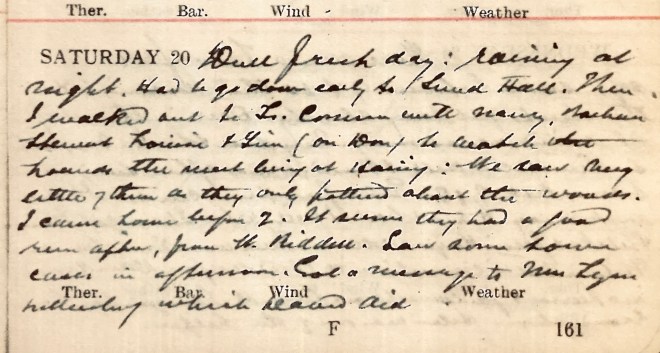 Ther. Bar. Wind Weather
SATURDAY 20 Dull fresh day: raining at
night. Had to go down early to Lund Hall. Then
I walked out to Ts. Common with nancy,
Stewart Louise & (on Don) to watch
hounds the meet being at : We saw very
little of them as they only pottered about the woods.
I came home before 2. It seems they had a good
run after, from W. Riddell. Saw some
cases in afternoon. Got a message to Mrs Lyne
Ther. Bar. Wind Weather
which Aid
F 161